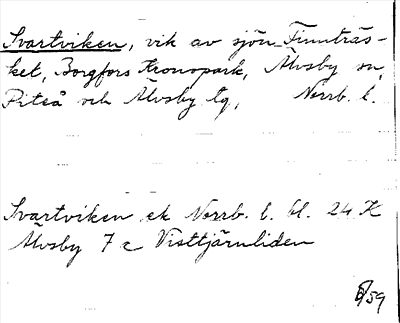 Svartviken, vik av sjön Finnträs-
ket, Borgfors Kronopark, Älvsby sn,
Piteå och Älvsby tg, Norrb. l.
Svartviken ek Norrb. l. bl. 24 K
Älvsby 7 c Visttjärnliden
/59